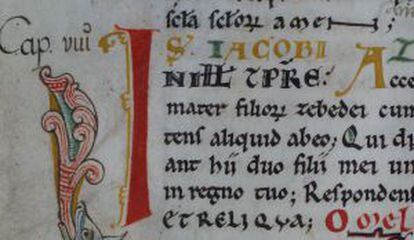 scła scłorꝝ amen
Cap. viii
I S. IACOBI
IN ILL̄ TPRE: Acce
mater filiorꝝ zebedei cum
tens aliquid abeo; Qui di
ant hii duo filii mei un
in regno tuo; Respondent
ET RELIQVA; Omel